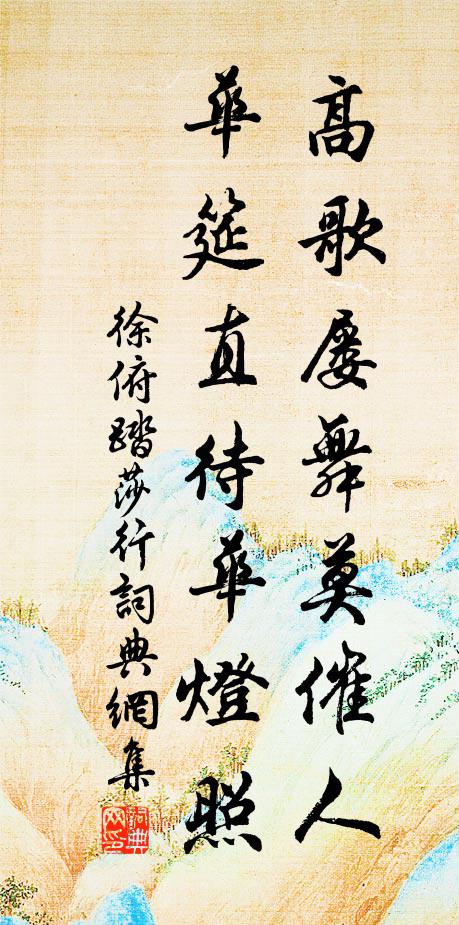 高歌屡舞莫催人
華筵直待華燈照
徐俯踏莎行詞典網集
詞典